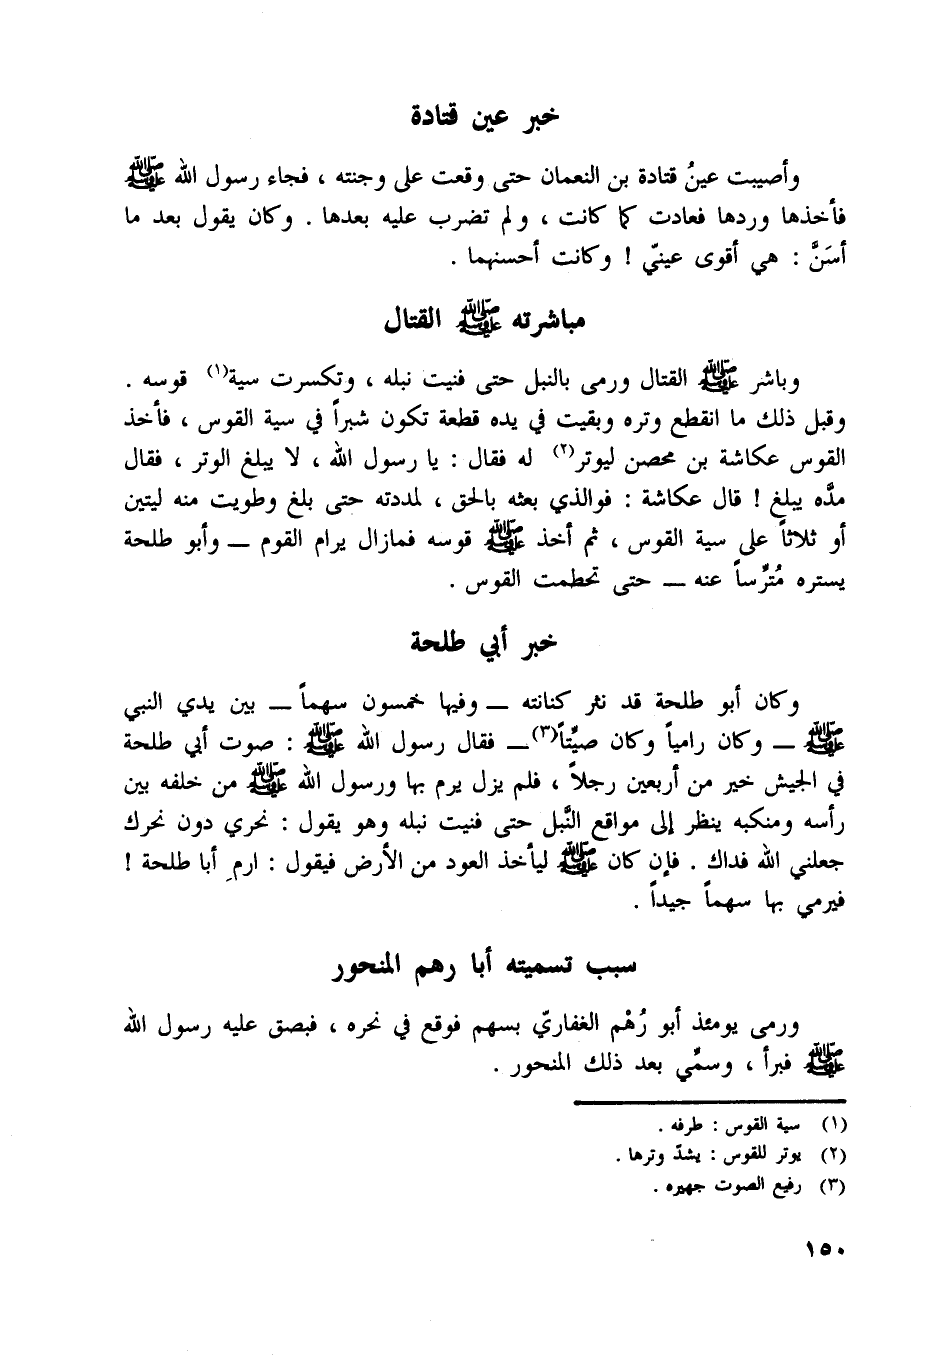 خبر عين قتادة
وأصيبت عينُ قتادة بن النعمان حتى وقعت على وجنته ، فجاء رسول الله ﷺ
فأخذها وردها فعادت كما كانت ، ولم تضرب عليه بعدها . وكان يقول بعد ما
أسَنَّ : هي أقوى عينيّ ! وكانت أحسنهما .
مباشرته ﷺ القتال
وباشر ﷺ القتال ورمى بالنبل حتى فنيت نبله ، وتكسرت سية(١) قوسه .
وقبل ذلك ما انقطع وتره وبقيت في يده قطعة تكون شبراً في سية القوس ، فأخذ
القوس عكاشة بن محصن ليوتر(٢) له فقال : يا رسول الله ، لا يبلغ الوتر ، فقال
مدَّه يبلغ ! قال عكاشة : فوالذي بعثه بالحق ، لمددته حتى بلغ وطويت منه ليتين
أو ثلاثاً على سية القوس ، ثم أخذ ﷺ قوسه فمازال يرام القوم ــ وأبو طلحة
يستره مُترِّساً عنه ــ حتى تحطمت القوس .
خبر أبي طلحة
وكان أبو طلحة قد نثر كنانته ــ وفيها خمسون سهماً ــ بين يدي النبي
ﷺ ــ وكان رامياً وكان صيِّتاً(٣)ــ فقال رسول الله ﷺ : صوت أبي طلحة
في الجيش خير من أربعين رجلاً ، فلم يزل يرم بها ورسول الله ﷺ من خلفه بين
رأسه ومنكبه ينظر إلى مواقع النَّبل حتى فنيت نبله وهو يقول : نحري دون نحرك
جعلني الله فداك . فإن كان ﷺ ليأخذ العود من الأرض فيقول : ارمِ أبا طلحة !
فيرمي بها سهماً جيداً .
سبب تسميته أبا رهم المنحور
ورمى يومئذ أبو رُهْم الغفاريّ بسهم فوقع في نحره ، فبصق عليه رسول الله
ﷺ فبرأ ، وسمِّي بعد ذلك المنحور .
(١) سية القوس : طرفه .
(٢) يوتر للقوس : يشدّ وترها .
(٣) رفيع الصوت جهيره .
١٥٠